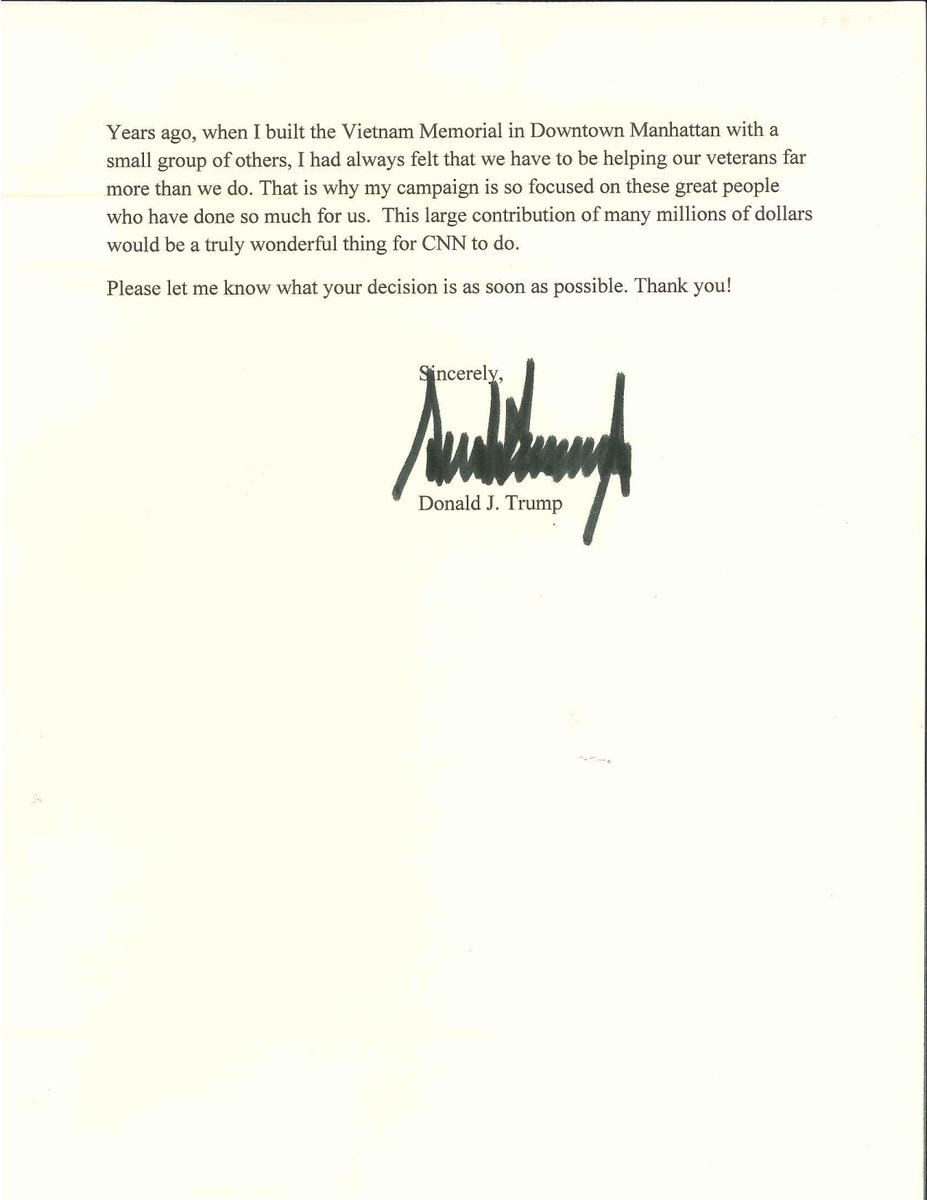 Years ago, when I built the Vietnam Memorial in Downtown Manhattan with a
small group of others, I had always felt that we have to be helping our veterans far
more than we do. That is why my campaign is so focused on these great people
who have done so much for us.  This large contribution of many millions of dollars
would be a truly wonderful thing for CNN to do.
Please let me know what your decision is as soon as possible. Thank you!
Sincerely,
Donald J. Trump